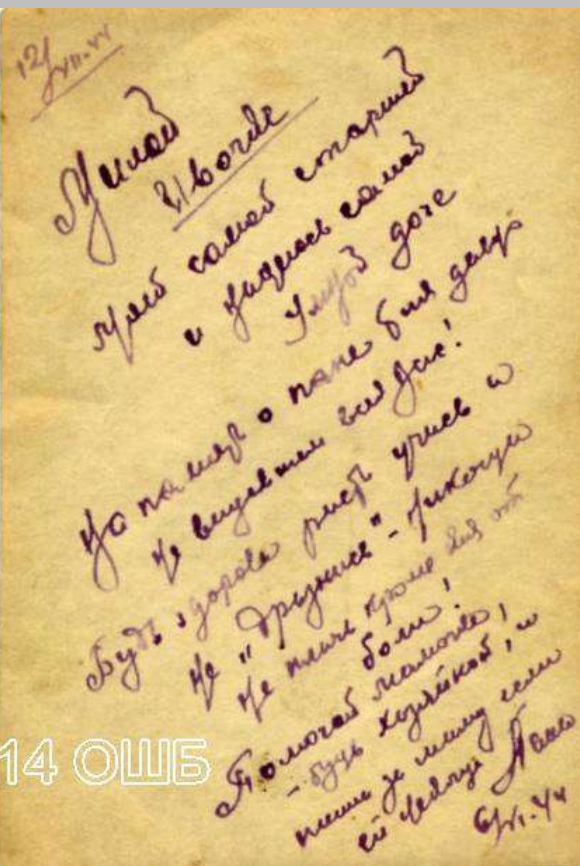 12/VII.44
Милой
Ивочке
моей самой старшей
и надеюсь самой
умной доче
На память о папе для
не видевшем вас дис!
Будь здорова расти учись и
не "дрызнись" - никогда
не плачь кроме для от
боли!
Помогай мамочке,
- будь хозяйкой, и
пиши за маму если
ей некогда Папа
6/VI.44
14 ОШБ